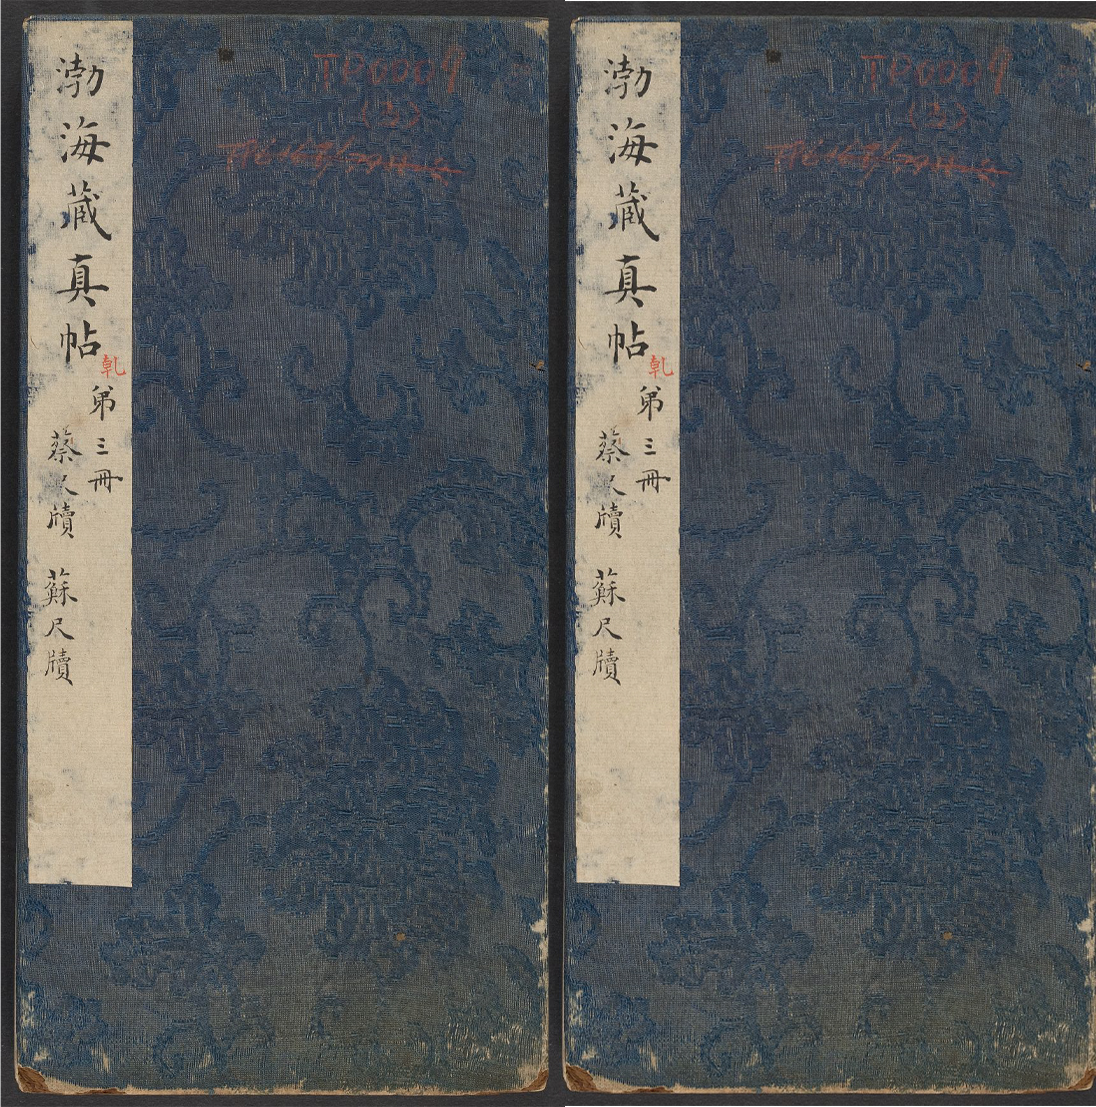 渤海藏真帖
乾
第三冊
蔡尺牘 蘇尺牘
TP0009
〈3〉
渤海藏真帖
乾
第三冊
蔡尺牘 蘇尺牘
TP0009
〈3〉